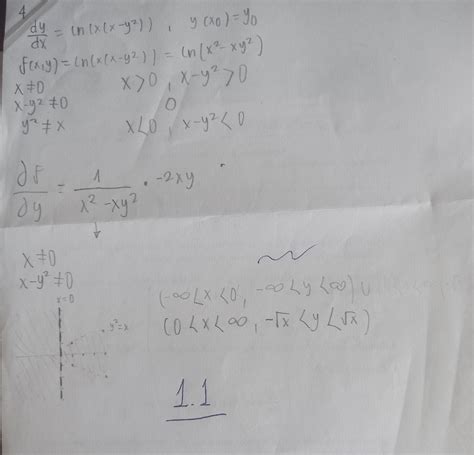 4
dy/dx = ln(x(x-y²)) , y(x₀)=y₀
f(x,y)=ln(x(x-y²)) = ln(x²-xy²)
x≠0 x>0 , x-y²>0
x-y²≠0 O
y²≠x x<0 , x-y²<0
∂f/∂y = 1/(x²-xy²) · -2xy
x≠0
x-y²≠0
x=0
y²=x
(-∞<x<0, -∞<y<∞) U
(0<x<∞, -√x<y<√x)
1.1